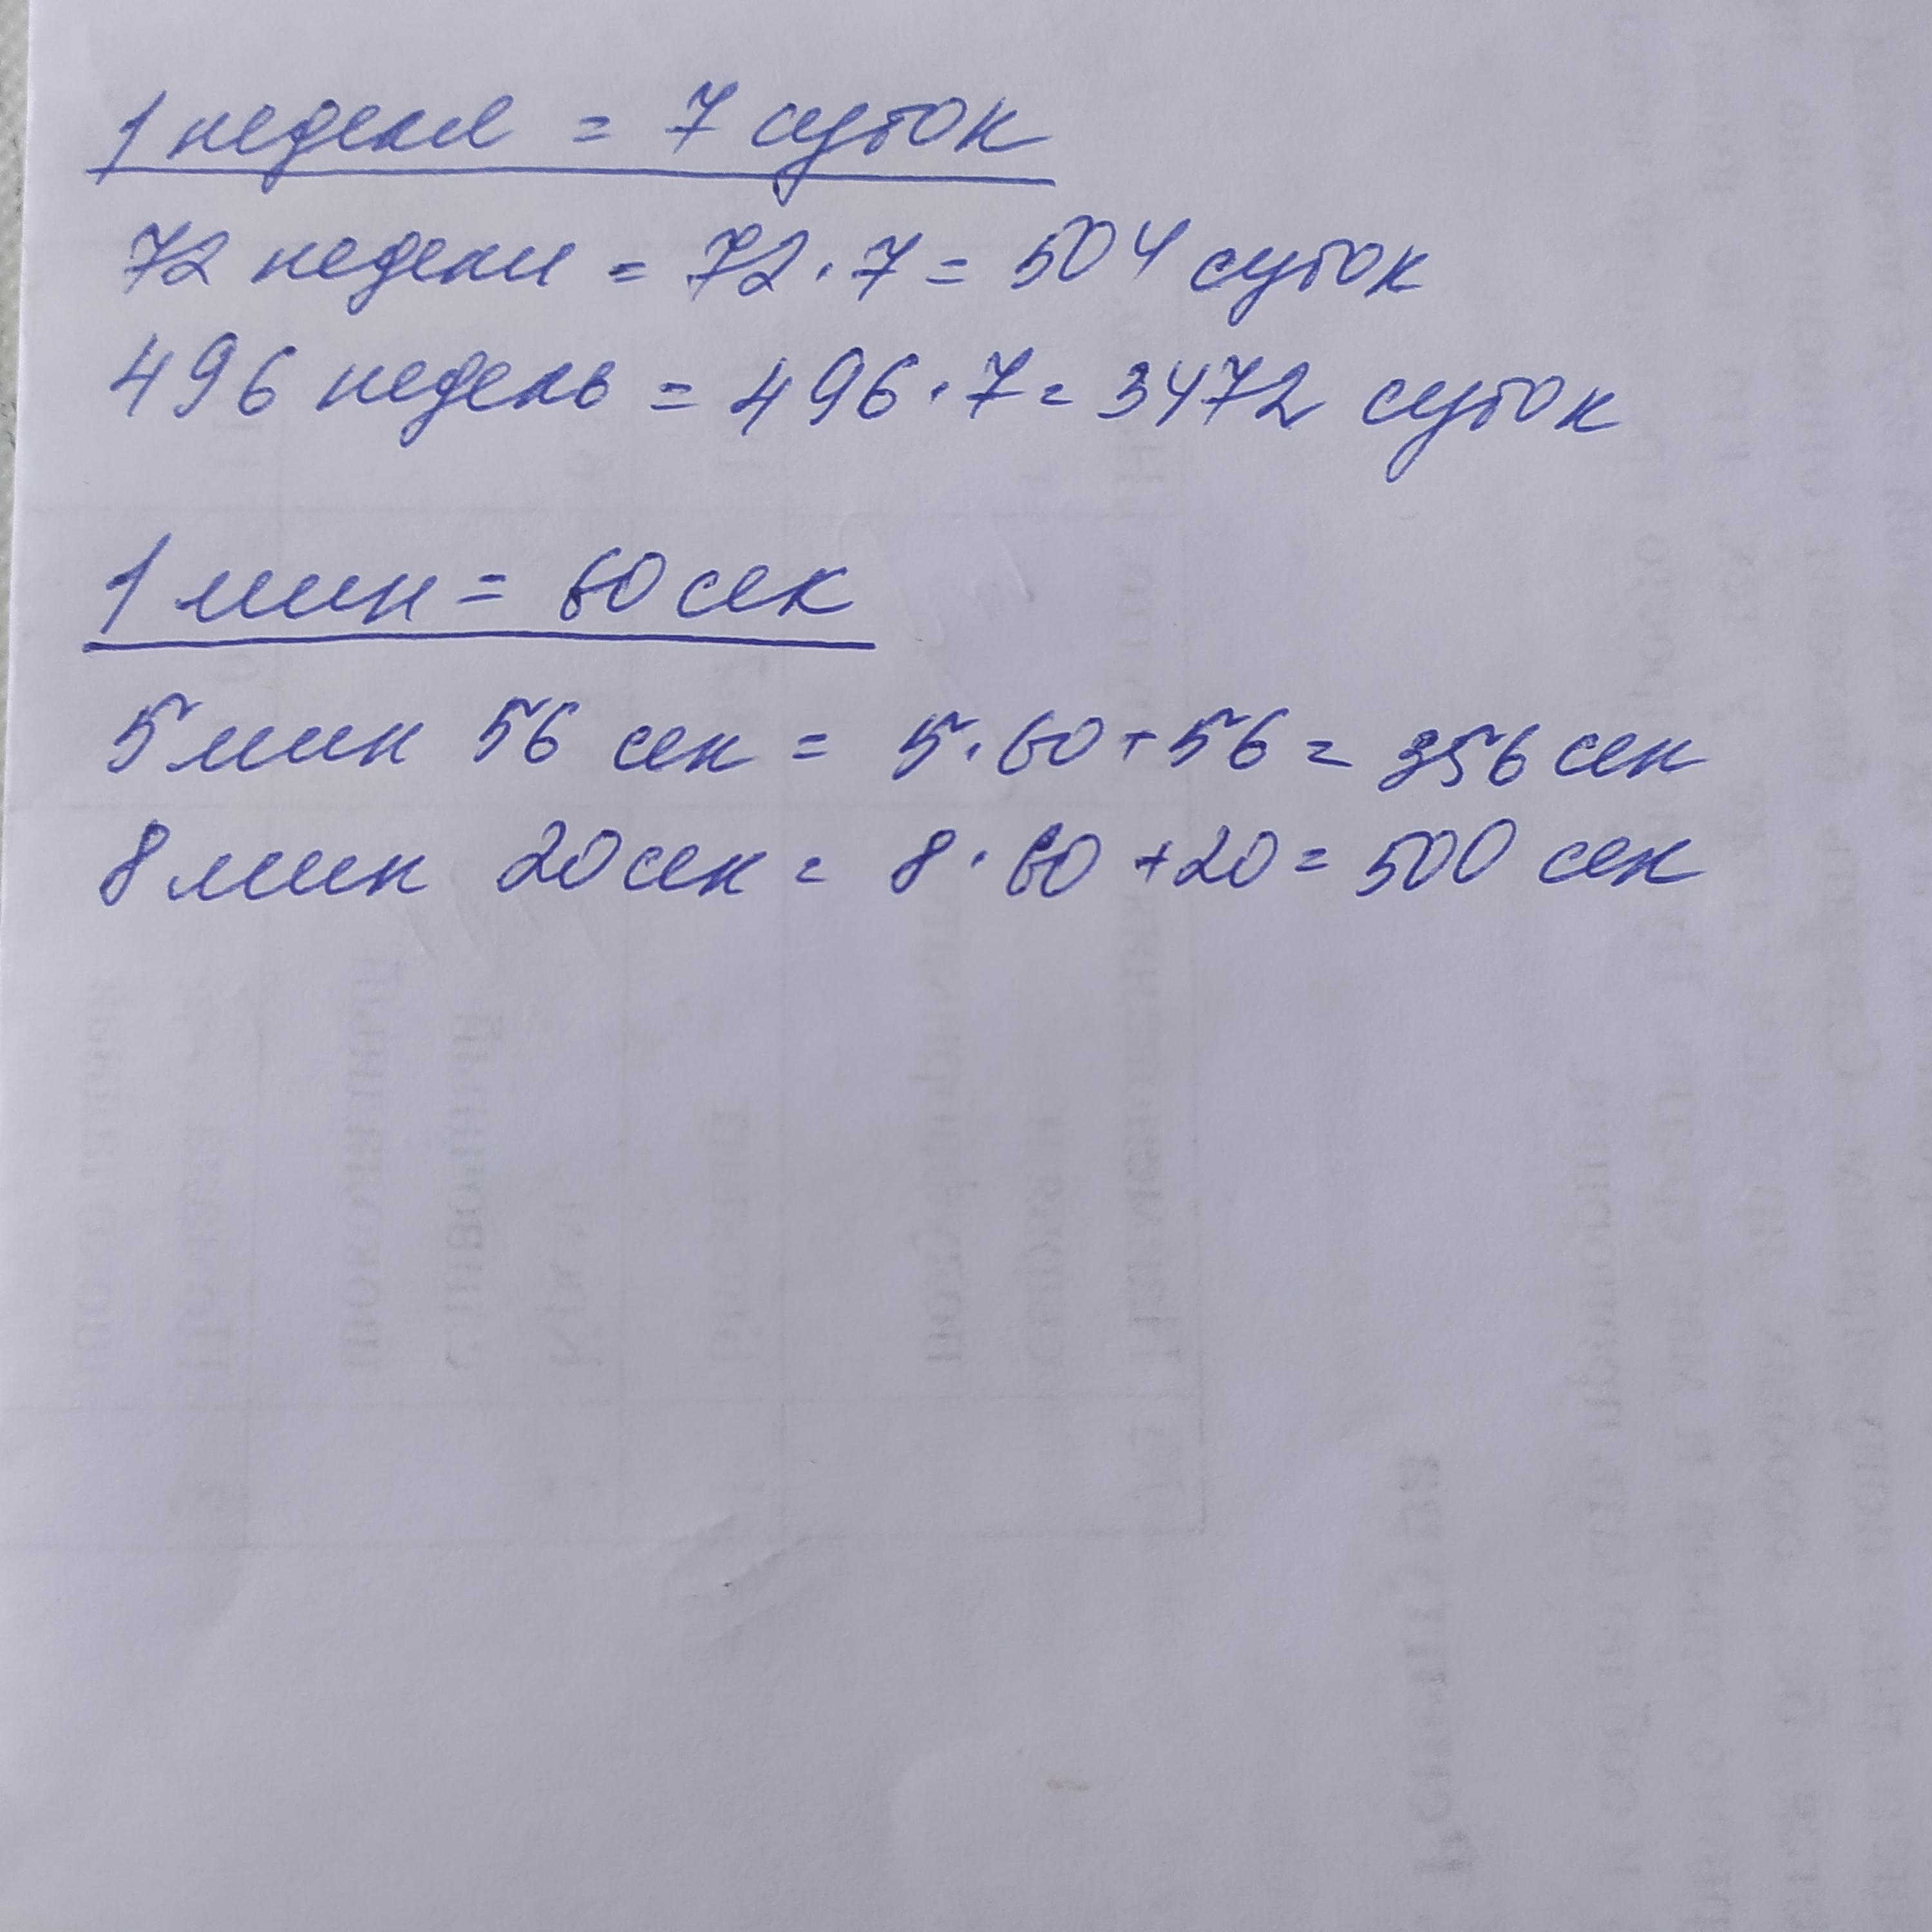 1 неделя = 7 суток
72 недели = 72 · 7 = 504 суток
496 недель = 496 · 7 = 3472 суток
1 мин = 60 сек
5 мин 56 сек = 5 · 60 + 56 = 356 сек
8 мин 20 сек = 8 · 60 + 20 = 500 сек